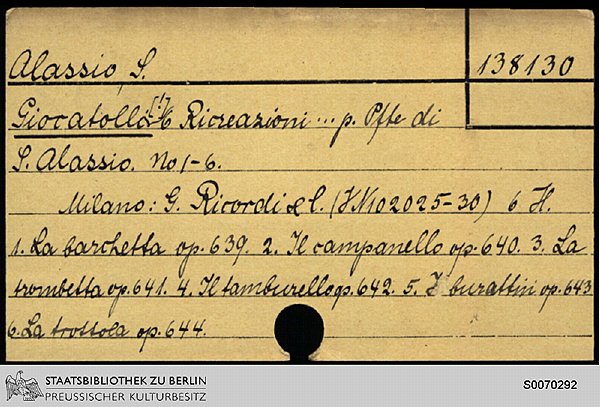 Alassio, S.
138130
Giocatolla [!] 6 Ricreazioni ... p. Pfte di
S. Alassio. No 1-6.
Milano: G. Ricordi & C. (VN 102025-30) 6 H.
1. La barchetta op. 639. 2. Il campanello op. 640. 3. La
trombetta op. 641. 4. Il tamburello op. 642. 5. I burattini op. 643
6. La trottola op. 644.
STAATSBIBLIOTHEK ZU BERLIN
PREUSSISCHER KULTURBESITZ
S0070292